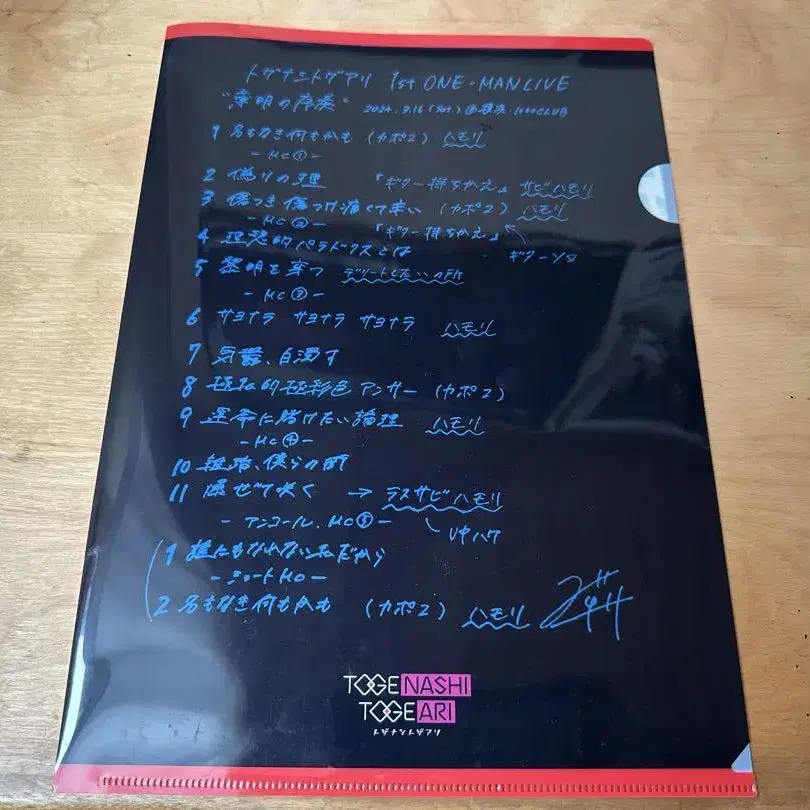 トゲナシトゲアリ 1st ONE-MAN LIVE
"薄明の序奏" 2024.3.16 (sat.) @横浜・1000CLUB
1 名もなき何もかも (カポ2) ハモリ
- MC① -
2 偽りの理 「ギター持ちかえ」 サビハモリ
3 傷つき傷つけ痛くて辛い (カポ2) ハモリ
- MC② - 「ギター持ちかえ」
4 理想的パラドクスとは ギターソロ
5 黎明を穿つ デリートしたいの所
- MC③ -
6 サヨナラ サヨナラ サヨナラ ハモリ
7 気鬱、白濁す
8 極私的極彩色アンサー (カポ2)
9 運命に賭けたい論理 ハモリ
- MC④ -
10 雑踏、僕らの街
11 爆ぜて咲く → ラスサビハモリ
- アンコール, MC⑤ -
1 誰にもなれない私だから
- ショートMC -
2 名もなき何もかも (カポ2) ハモリ
TOGENASHI
TOGEARI
トゲナシトゲアリ